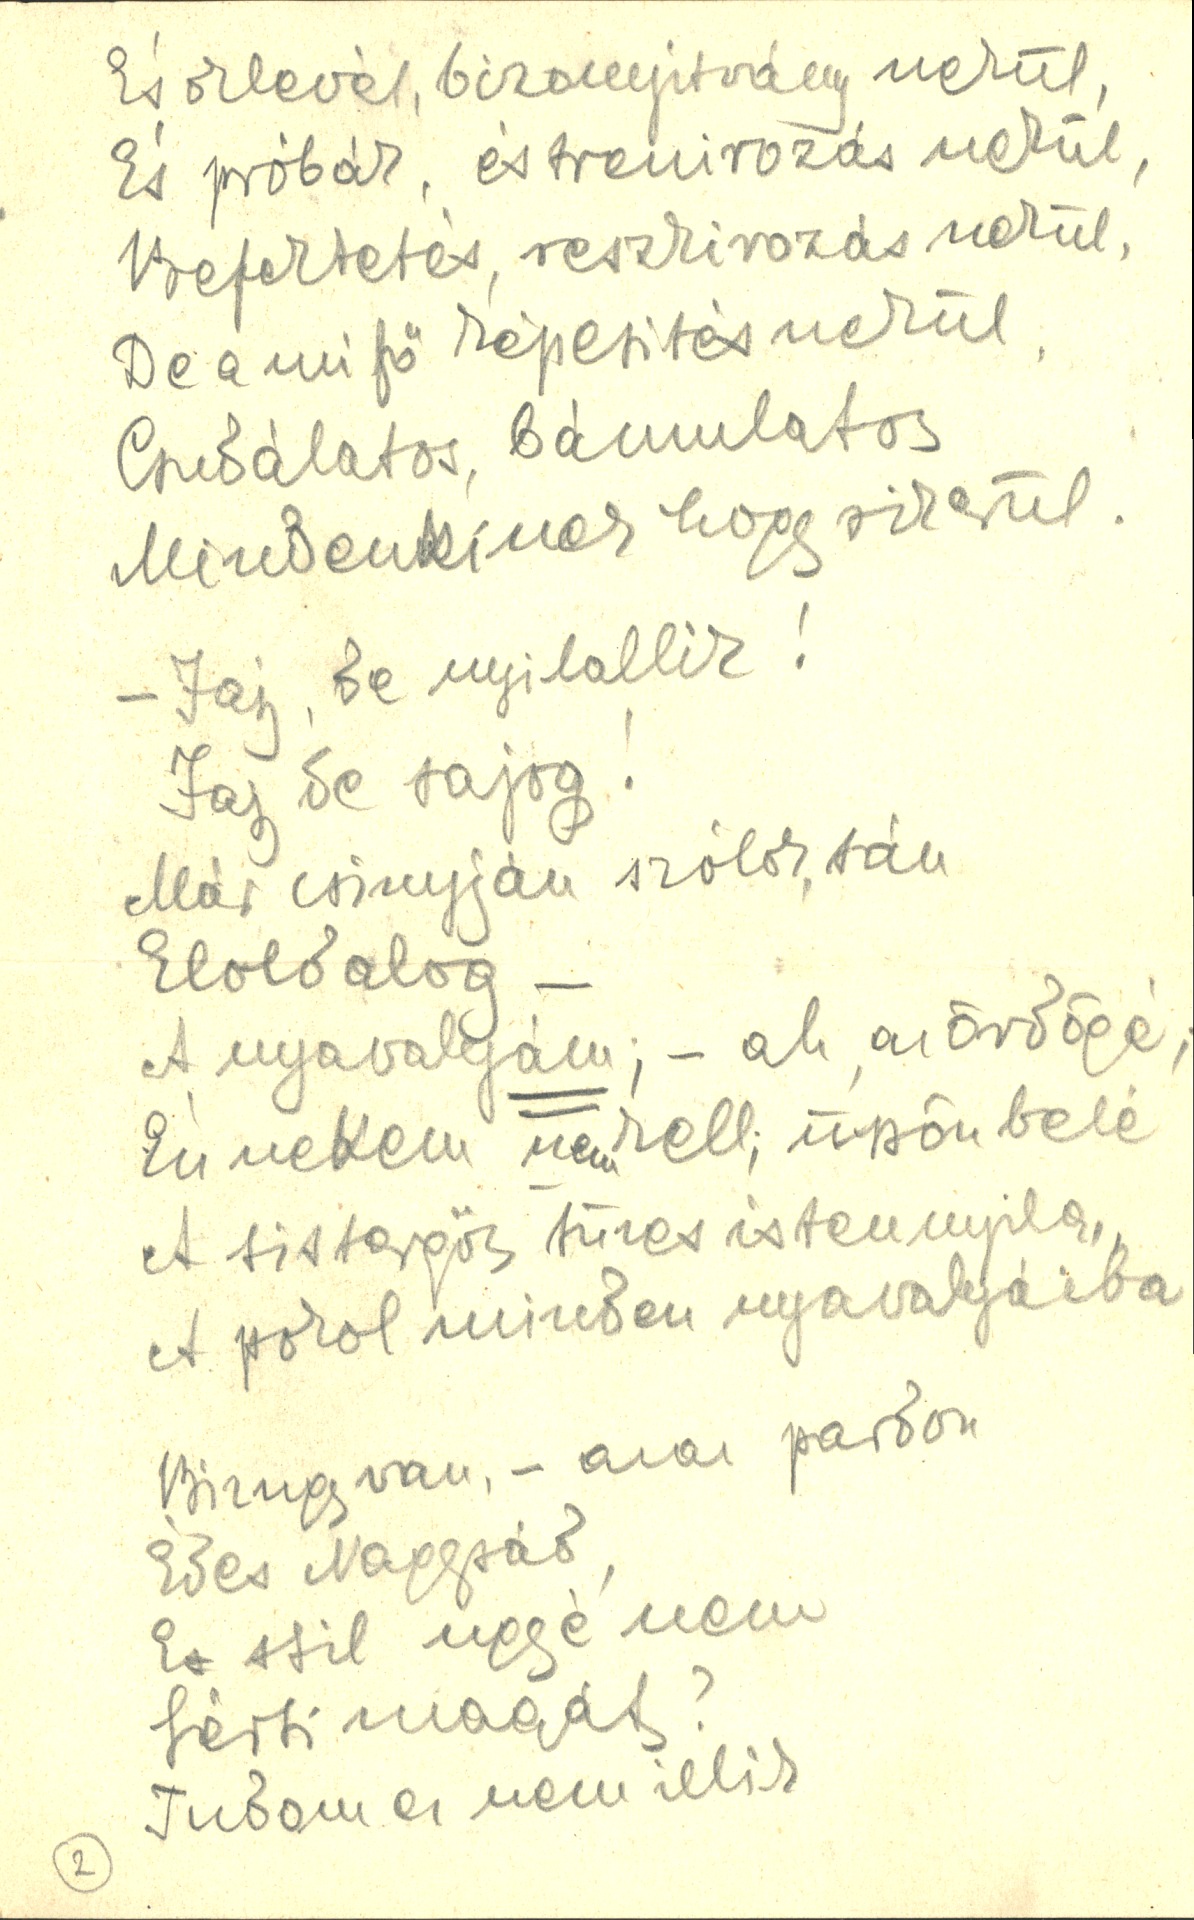 És oklevél, bizonyitvány nekül,
És próbák, és trenirozás nekül,
Befektetés, reszkirozás nekül,
De a mi fő képesités nekül,
Csudálatos, bámulatos
Mindenkinek hogy sikerül.
– Jaj, be nyilallik!
Jaj be sajog!
Már csinyján szólok, tán
Eloldalog –
A nyavalyám; – ah, az ördögé;
Én nekem nem kell; üssön belé
A sistergős tüzes istennyila,
A pokol minden nyavalyáiba
Bizugy van, – azaz pardon
Édes Nagysád,
Ez stil ugyé nem
Sérti magát?
Tudom ez nem illik
2